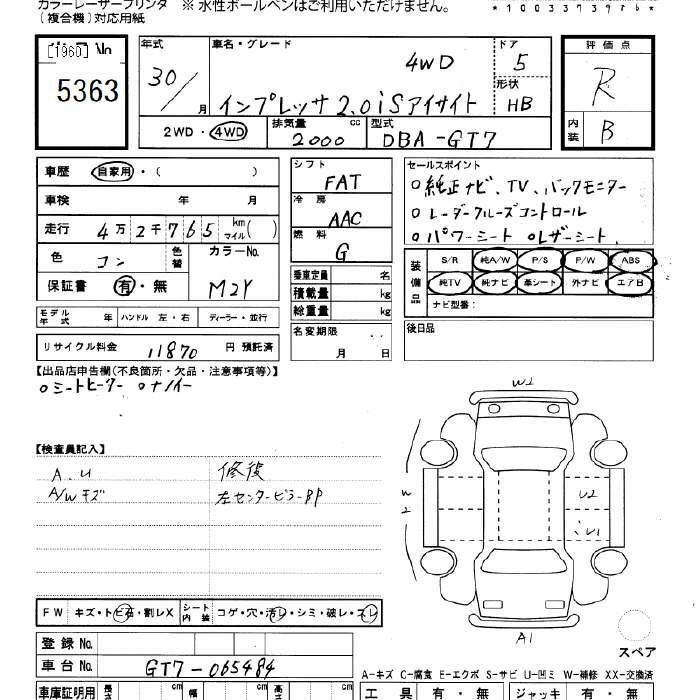 カラーレーザープリンタ ※ 水性ボールペンはご利用いただけません。
(複合機)対応用紙
[1960]
5363
年式 30/ 月
車名・グレード 4WD
インプレッサ 2.0iS アイサイト
ドア 5
形状 HB
2WD・4WD 排気量 2000 cc 型式 DBA-GT7
評価点 R
内装 B
車歴 自家用・( )
車検 年 月
走行 4万2千765 km マイル( )
色 コン 色替 カラーNo. M2Y
保証書 有・無
シフト FAT
冷房 AAC
燃料 G
乗車定員 名
積載量 kg
総重量 kg
セールスポイント
○純正ナビ、TV、バックモニター
○レーダークルーズコントロール
○パワーシート ○レザーシート
装備品 S/R 純A/W P/S P/W ABS
純TV 純ナビ 革シート 外ナビ エアB
ナビ型番:
モデル年式 年 ハンドル 左・右 ディーラー・並行
名変期限 月 日
後日品
リサイクル料金 11870 円 預託済
【出品店申告欄(不良箇所・欠品・注意事項等)】
○シートヒーター ○ナノイー
【検査員記入】
A.U 修復
A/Wキズ 左センターピラーBP
W2
U2
U1
A1
FW キズ・トビ石・割レX シート内装 コゲ・穴・汚レ・シミ・破レ・スレ
スペア
登録No.
車台No. GT7-065484
A-キズ C-腐食 E-エクボ S-サビ U-凹ミ W-補修 XX-交換済
車庫証明用 長さ cm 幅 cm 高さ cm
工具 有・無 ジャッキ 有・無